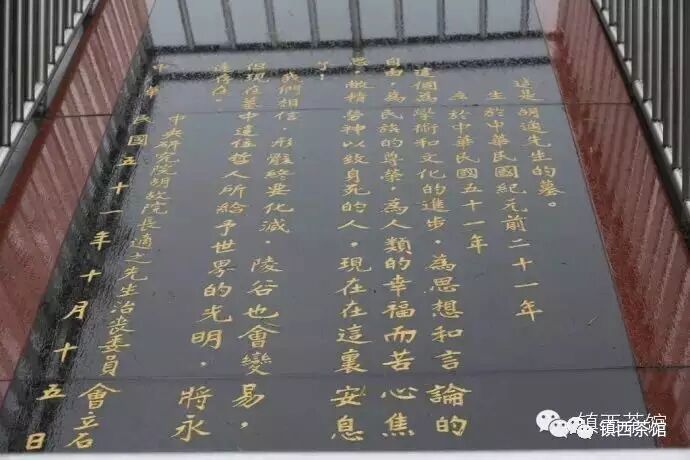 這是胡適先生的墓。
生於中華民國紀元前二十一年
卒於中華民國五十一年
這個為學術和文化的進步，為思想和言論的
自由，為民族的尊榮，為人類的幸福而苦心焦
思，敝精勞神以致身死的人，現在在這裏安息
了！
我們相信，形骸終要化滅，陵谷也會變易，
但現在墓中這位哲人所給予世界的光明，將永
遠存在。
中央研究院胡故院長適之先生治喪委員會立石
中華民國五十一年十月十五日
镇西茶馆
镇西茶馆